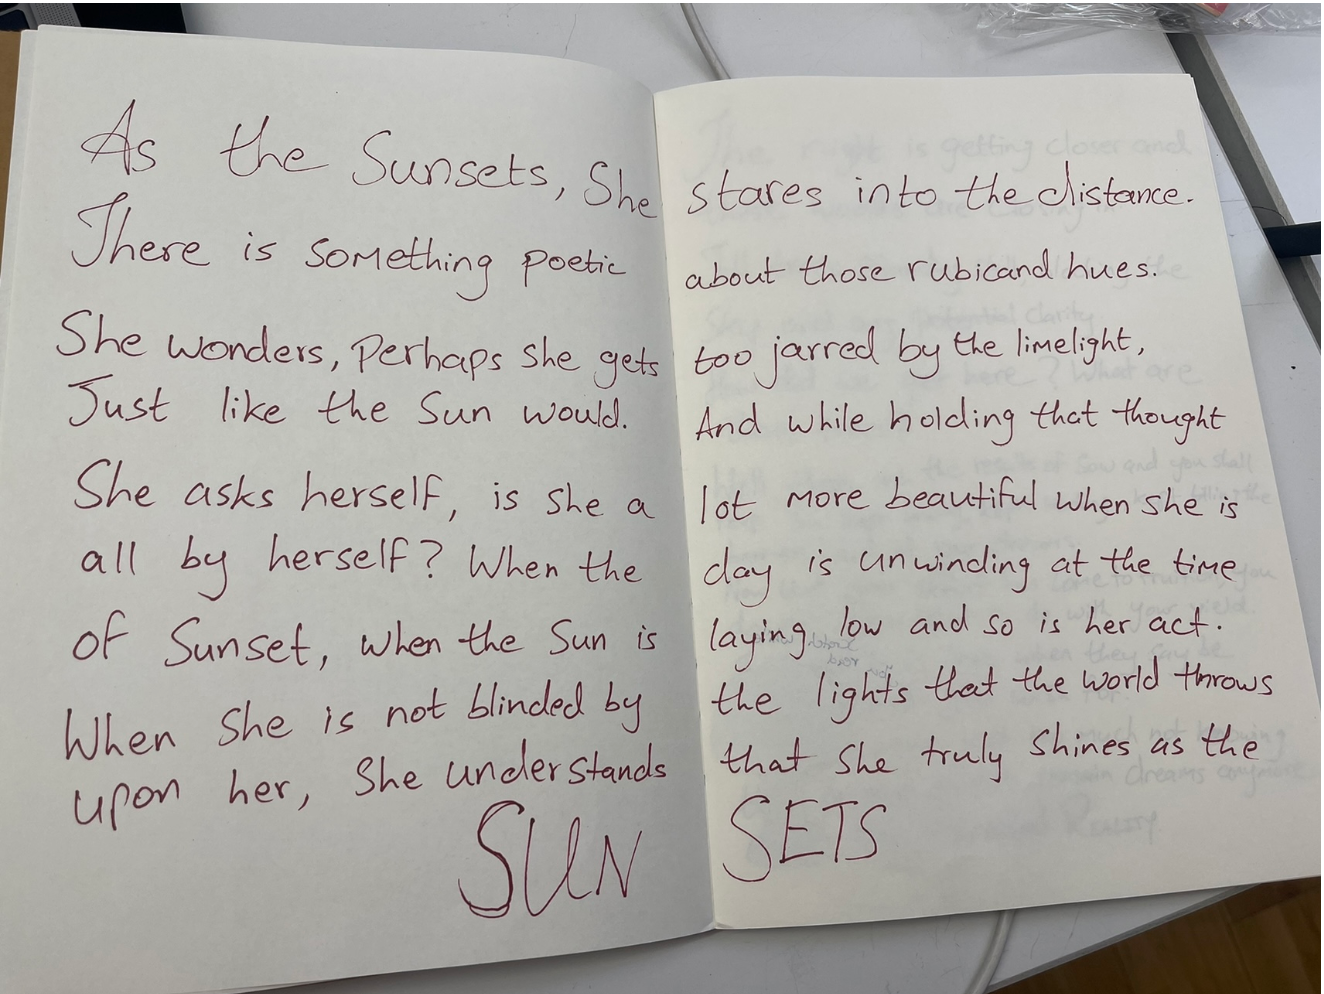 As the Sunsets, She stares into the distance.
There is something poetic about those rubicand hues.
She wonders, Perhaps she gets too jarred by the limelight,
Just like the Sun would. And while holding that thought
She asks herself, is she a lot more beautiful when she is
all by herself? When the day is unwinding at the time
of Sunset, when the Sun is laying low and so is her act.
When She is not blinded by the lights that the world throws
upon her, She understands that She truly Shines as the
SUN SETS